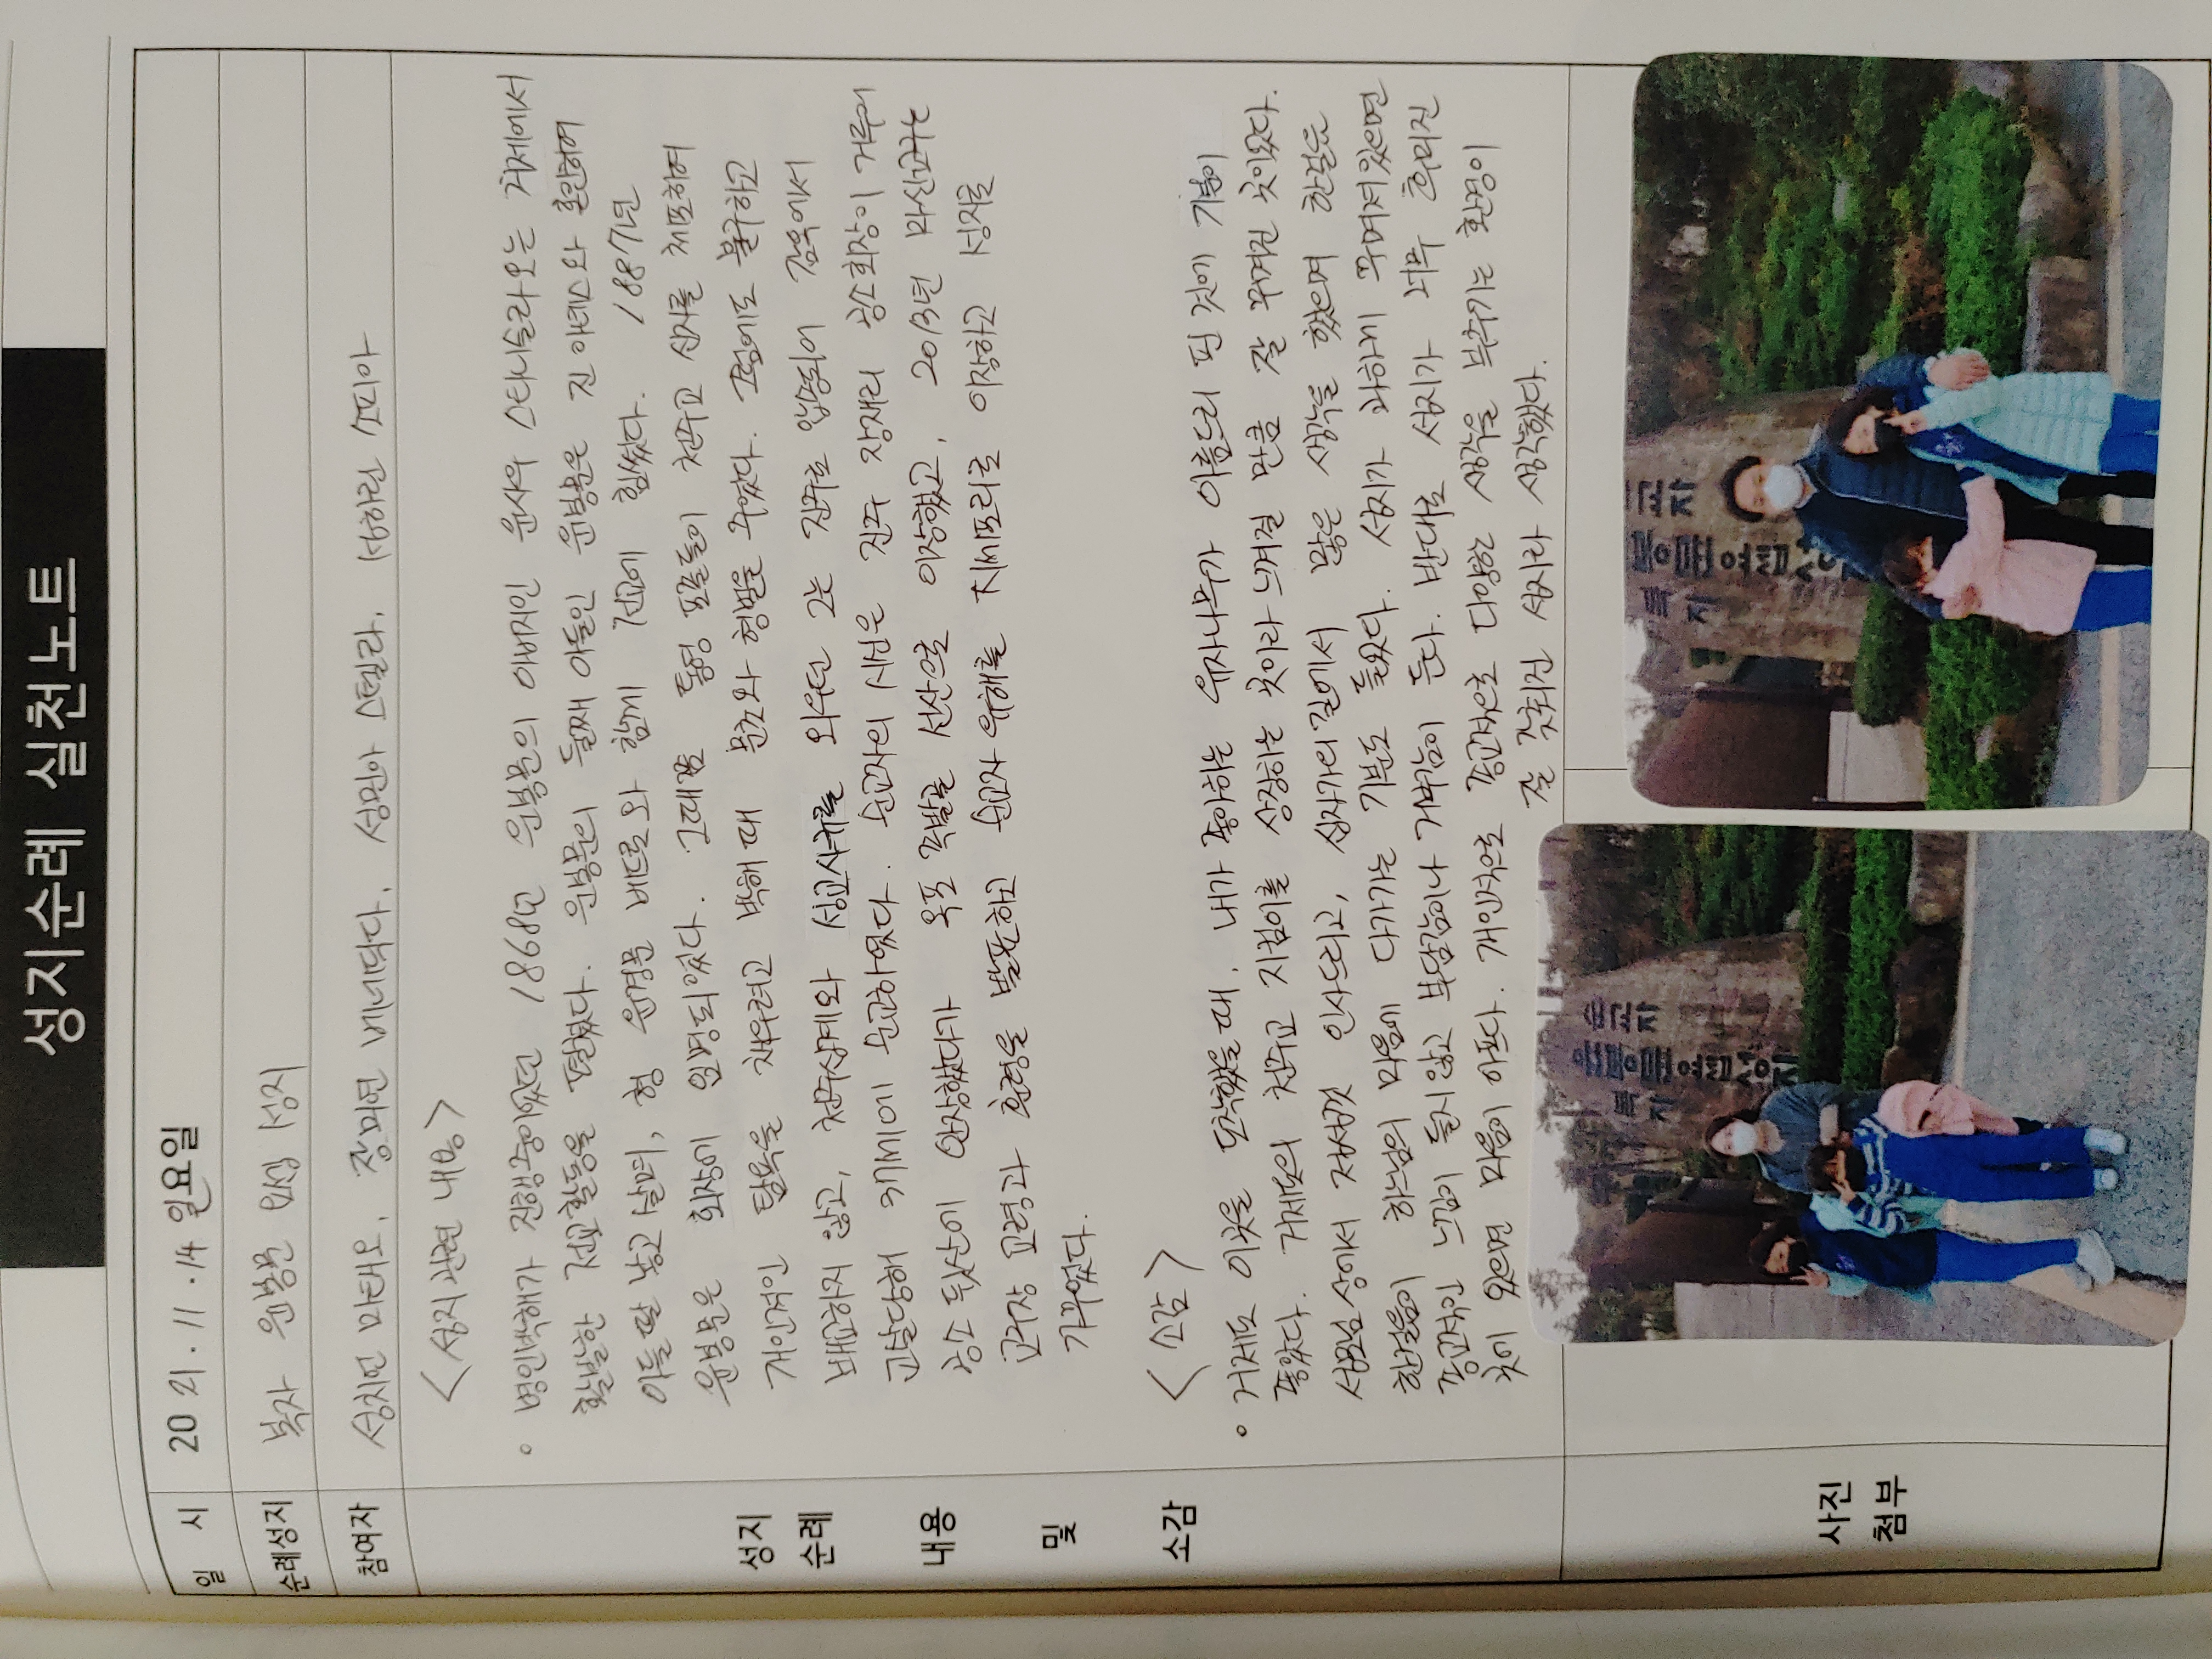 성지순례 실천노트
일 시 2021.11.14 일요일
순례성지 복자 윤봉문 요셉 성지
참여자 성치헌 마태오, 장미연 베네딕다, 성민아 스텔라, 성하린 소피아
<성지관련 내용>
• 병인박해가 진행중이었던 1868년 윤봉문의 아버지인 윤사우 스타니슬라오는 거제에서
활발한 전교활동을 펼쳤다. 윤봉문의 둘째 아들인 윤봉문은 진 아네스와 혼인하여
아들딸 낳고 살며, 형 윤경문 베드로와 함께 전교에 힘썼다. 1887년
윤봉문은 회장에 임명되었다. 그때쯤 통영 포졸들이 천주교 신자를 체포하여
개인적인 탐욕을 채우려고 박해 때 문초와 형벌을 주었다. 고문에도 불구하고
배교하지 않고, 천주십계와 성교사규를 외우던 그는 진주로 압송되어 감옥에서
교살당해 37세에 순교하였다. 순교자의 시신은 진주 장재리 공소회장이 거두어
공소 뒷산에 안장했다가 옥포 족박골 선산으로 이장했고, 2013년 마산교구는
교구장 교령과 훈령을 발표하고 순교자 유해를 지세포리로 이장하고 성지를
가꾸었다.
<소감>
• 거제도 이곳을 도착했을 때, 내가 좋아하는 유자나무가 아름드리 핀 것에 기분이
좋았다. 거제도의 천주교 지킴이를 상징하는 곳이라 느껴질 만큼 잘 꾸며진 곳이었다.
성모님상에서 저절로 인사드리고, 십자가의 길에서 많은 생각을 했으며 한걸음
한걸음이 하느님의 마음에 다가가는 기분도 들었다. 성지가 과하게 꾸며져있으면
종교적인 느낌이 들지 않고 부담감이나 거부감이 든다. 반대로 성지가 너무 후미진
곳에 있으면 마음이 아프다. 개인적으로 종교적으로 다양한 생각을 부추기는 환경이
잘 갖춰진 성지라 생각했다.
성지
순례
내용
및
소감
사진
첨부
순교자
윤봉문요셉성지
복자
순교자
봉문요셉성
복
지